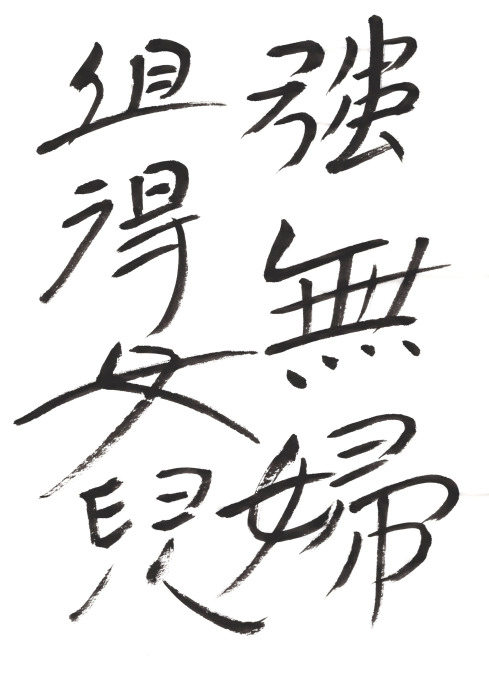 強無婦
但得女兒